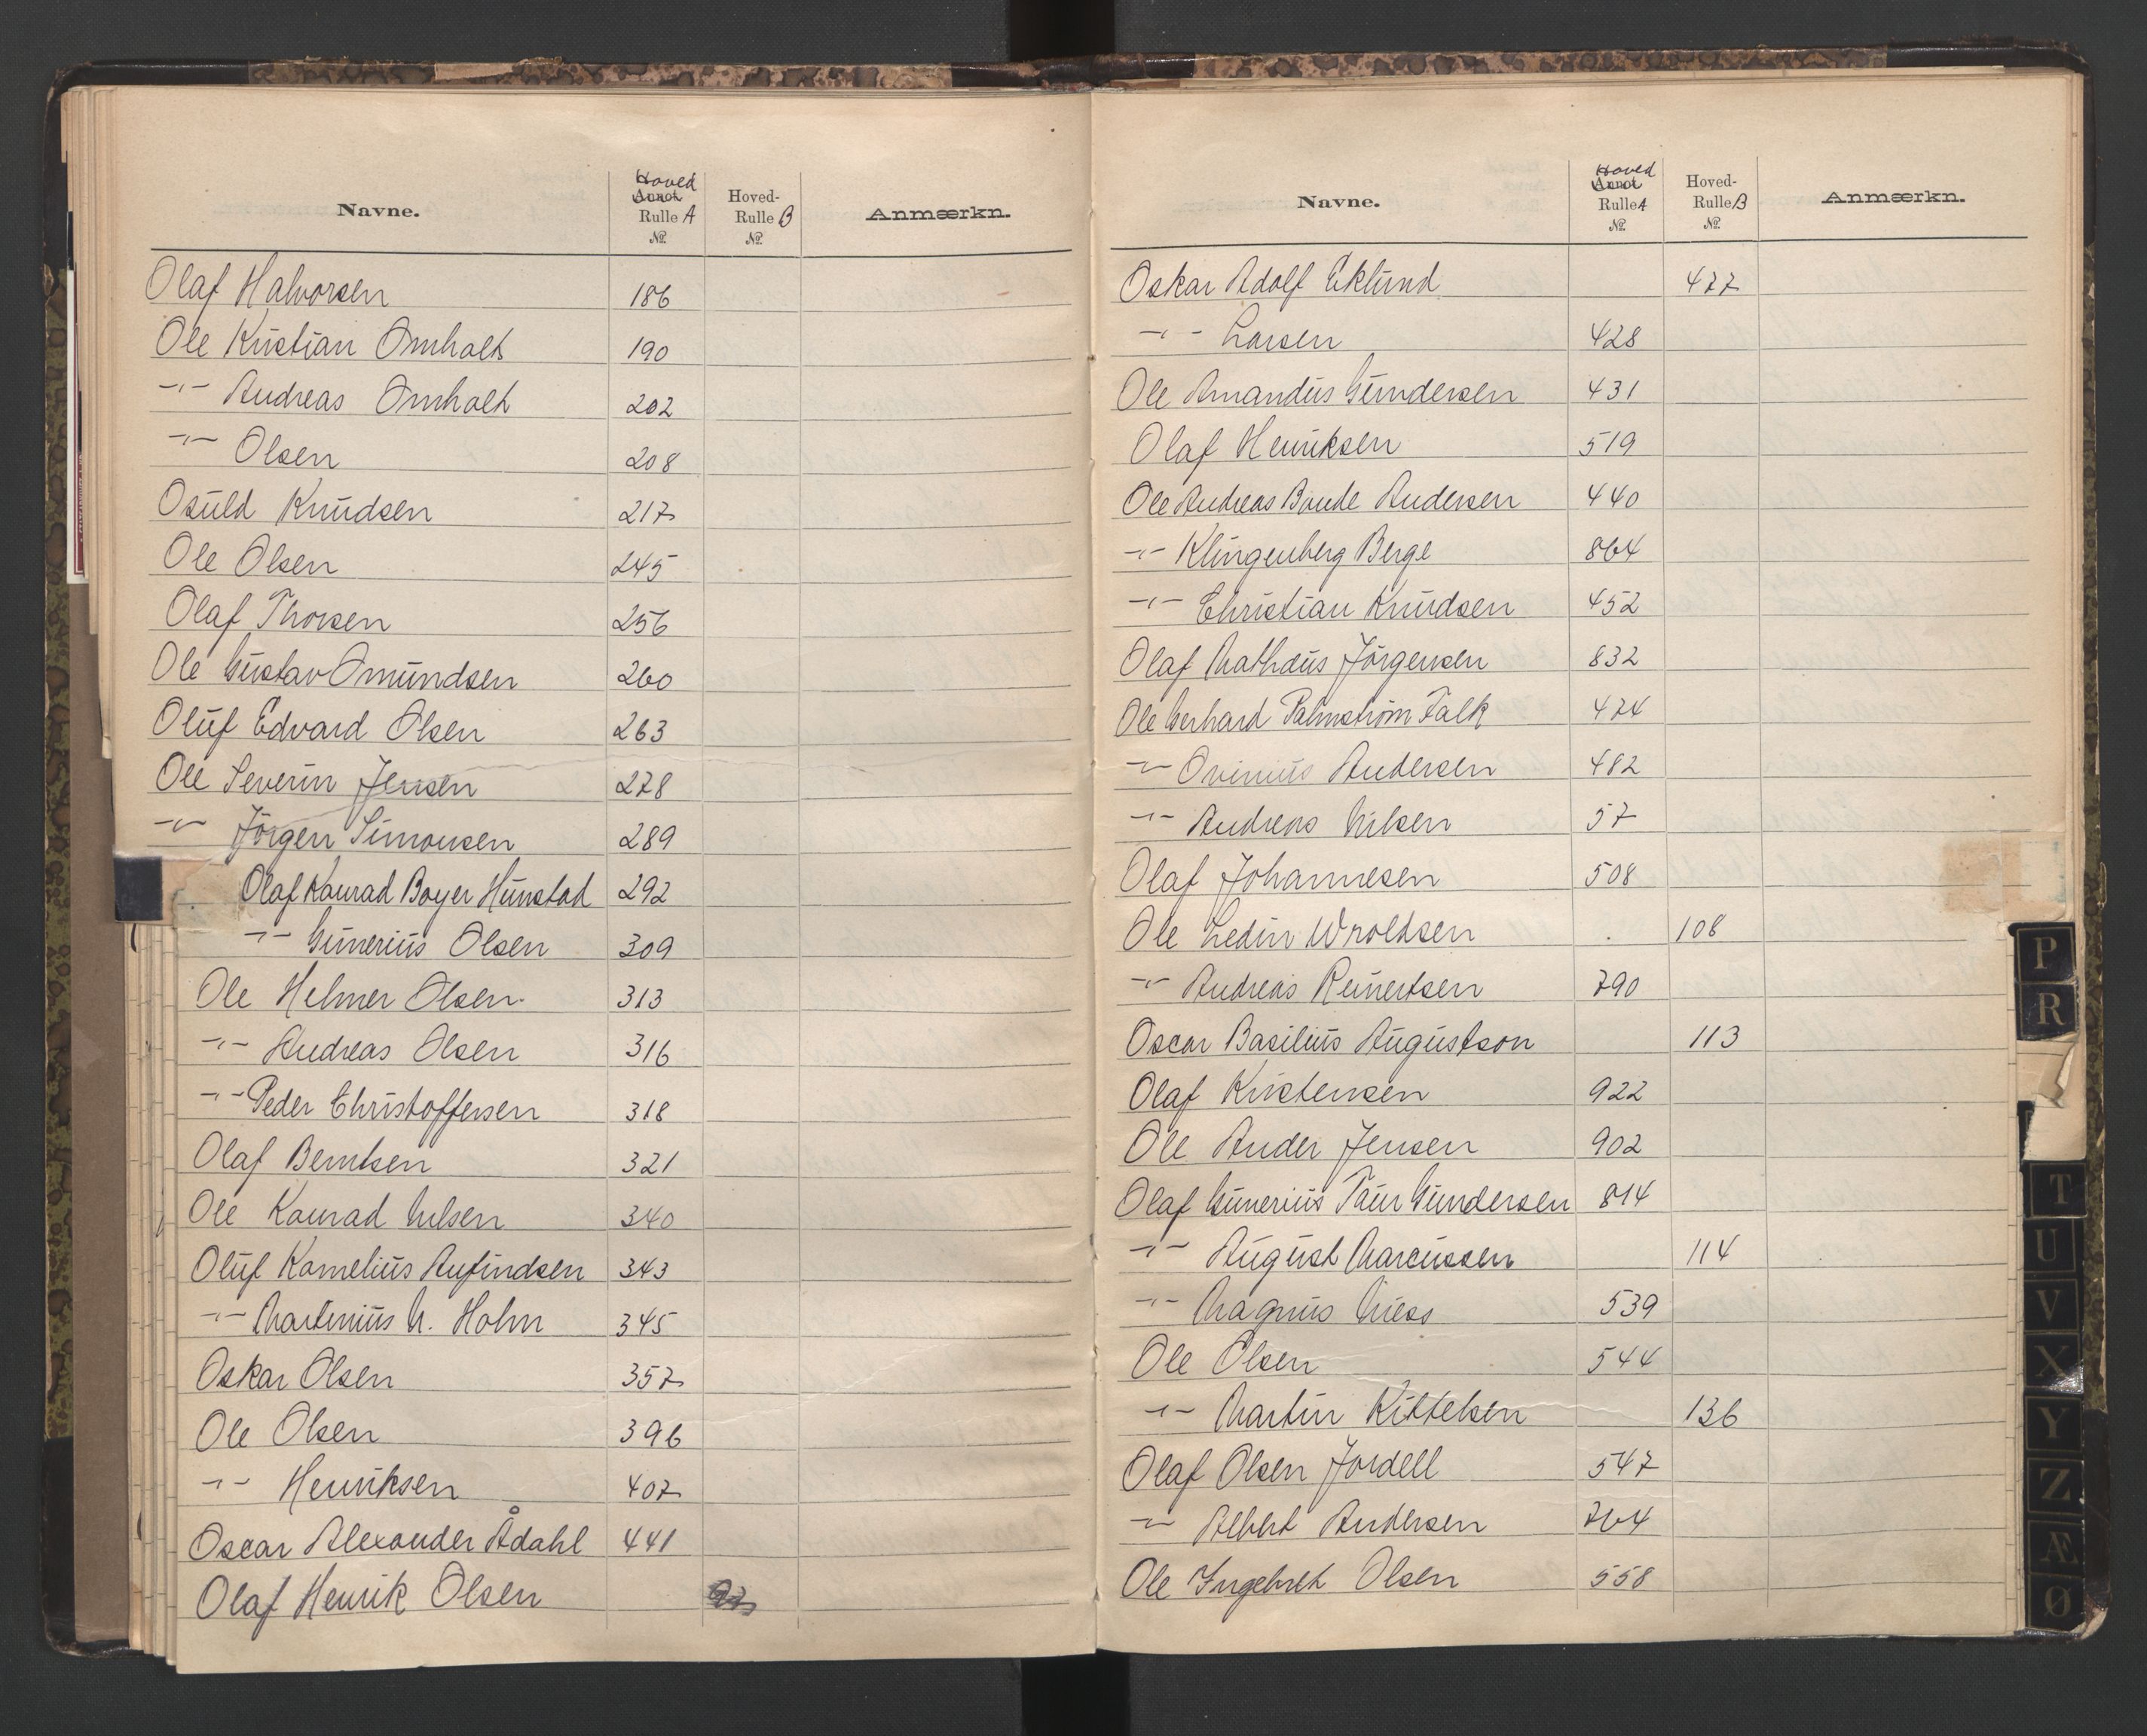 Navne. Hoved Annot Rulle A No. Hoved-Rulle B No. Anmærkn.
Olaf Halvorsen 186
Ole Kristian Omholt 190
-"- Andreas Omholt 202
-"- Olsen 208
Osuld Knudsen 217
Ole Olsen 245
Olaf Thorsen 256
Ole Gustav Omundsen 260
Oluf Edvard Olsen 263
Ole Severin Jensen 278
-"- Jörgen Simonsen 289
Olaf Konrad Boyer Hunstad 292
-"- Gunerius Olsen 309
Ole Helmer Olsen. 313
-"- Andreas Olsen 316
-"- Peder Christoffersen 318
Olaf Berntsen 321
Ole Konrad Nilsen 340
Oluf Kornelius Anfindsen 343
-"- Martinius N. Holm 345
Oskar Olsen 357
Ole Olsen 396
-"- Henriksen 407
Oscar Alexander Ådahl 441
Olaf Henrik Olsen
Navne. Hoved Annot Rulle A No. Hoved-Rulle B No. Anmærkn.
Oskar Adolf Eklund 477
-"- Larsen 428
Ole Amandus Gundersen 431
Olaf Henriksen 519
Ole Andreas Bonde Andersen 440
-"- Klingenberg Berge 864
-"- Christian Knudsen 452
Olaf Mathæus Jörgensen 832
Ole Gerhard Palmström Falk 474
-"- Ovinius Andersen 482
-"- Andreas Nilsen 57
Olaf Johannesen 508
Ole Ledin Wroldsen 108
-"- Andreas Reinertsen 790
Oscar Basilius Augustson 113
Olaf Kristensen 922
Ole Ander Jensen 902
Olaf Gunerius Taur Gundersen 814
-"- August Marcussen 114
-"- Magnus Næss 539
Ole Olsen 544
-"- Martin Kittelsen 136
Olaf Olsen Jordell 547
-"- Albert Andersen 764
Ole Ingebret Olsen 558
P
R
T
U
V
X
Y
Z
Æ
Ø